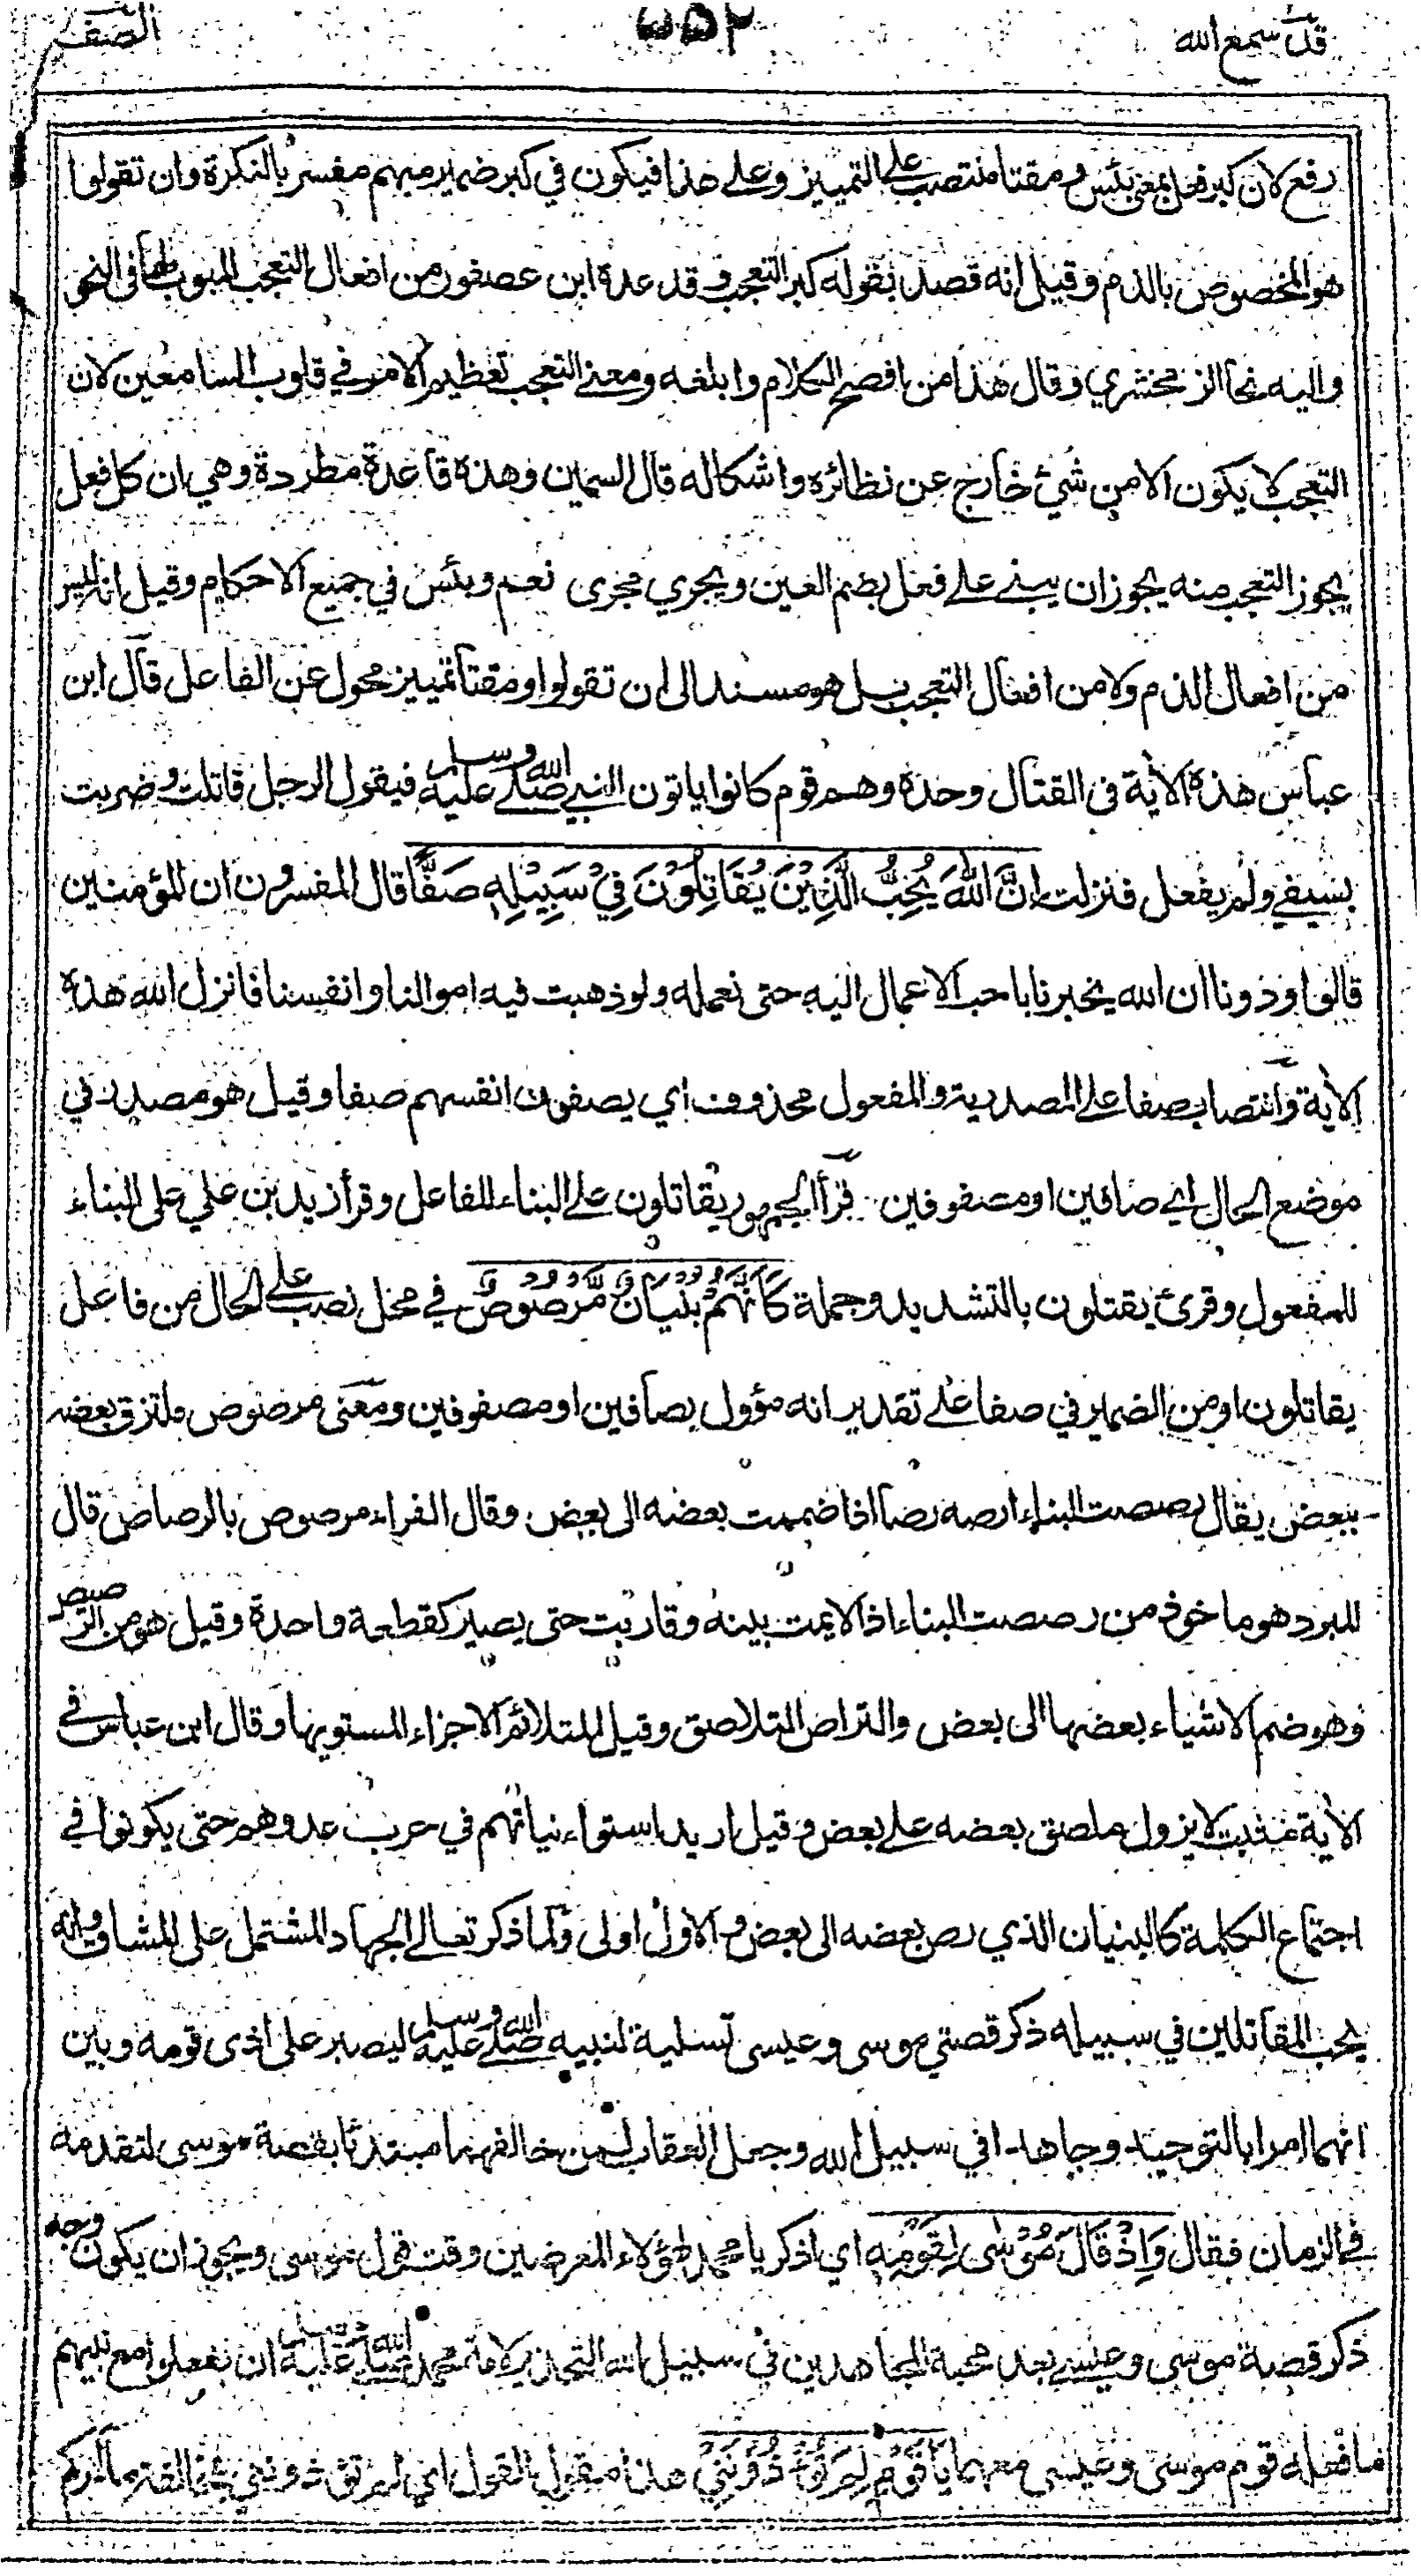 قد سمع الله ٥٥٢ الصف
رفع لان كبر فعل بمعنى بئس ومقتا منتصب على التمييز وعلى هذا فيكون في كبر ضمير مبهم مفسر بالنكرة وان تقولوا
هو المخصوص بالذم وقيل انه قصد بقوله كبر التعجب وقد عدة ابن عصفور من افعال التعجب المبوب لها في النحو
واليه نحا الزمخشري وقال هذا من افصح الكلام وابلغه ومعنى التعجب تعظيم الامر في قلوب السامعين لان
التعجب لا يكون الا من شئ خارج عن نظائره واشكاله قال السمين وهذه قاعدة مطردة وهي ان كل فعل
يجوز التعجب منه يجوز ان يبنى على فعل بضم العين ويجري مجرى نعم وبئس في جميع الاحكام وقيل انه ليس
من افعال الذم ولا من افعال التعجب بل هو مسند الى ان تقولوا ومقتا تمييز محول عن الفاعل قال ابن
عباس هذه الأية في القتال وحدة وهم قوم كانوا ياتون النبي صلى الله عليه وسلم فيقول الرجل قاتلت وضربت
بسيفي ولم يفعل فنزلت اِنَّ اللّٰهَ يُحِبُّ الَّذِيْنَ يُقَاتِلُوْنَ فِيْ سَبِيْلِهٖ صَفًّا قال المفسرون ان المؤمنين
قالوا وددنا ان الله يخبرنا باحب الاعمال اليه حتى نعمله ولو ذهبت فيه اموالنا وانفسنا فانزل الله هذه
الأية وانتصاب صفا على المصدرية والمفعول محذوف اي يصفون انفسهم صفا وقيل هو مصدر في
موضع الحال اي صافين او مصفوفين قرأ الجمهور يقاتلون على البناء للفاعل وقرأ زيد بن علي على البناء
للمفعول وقرئ يقتلون بالتشديد وجملة كَاَنَّهُمْ بُنْيَانٌ مَّرْصُوْصٌ في محل نصب على الحال من فاعل
يقاتلون او من الضمير في صفا على تقدير انه مؤول بصافين او مصفوفين ومعنى مرصوص ملتزق بعضه
ببعض يقال رصصت البناء ارصه رصا اذا ضممت بعضه الى بعض وقال الفراء مرصوص بالرصاص قال
المبرد هو ماخوذ من رصصت البناء اذا لايمت بينه وقاربت حتى يصير كقطعة واحدة وقيل هو من الترصيص
وهو ضم الاشياء بعضها الى بعض والتراص التلاصق وقيل المتلائم الاجزاء المستويها وقال ابن عباس في
الأية مثبت لا يزول ملصق بعضه على بعض وقيل اريد استواء نياتهم في حرب عدوهم حتى يكونوا في
اجتماع الكلمة كالبنيان الذي رص بعضه الى بعض والاول اولى ولما ذكر تعالى الجهاد المشتمل على المشاق وانه
يحب المقاتلين في سبيله ذكر قصتي موسى وعيسى تسلية لنبيه صلى الله عليه وسلم ليصبر على اذى قومه وبين
انهما امرا بالتوحيد وجاهدا في سبيل الله وجعل العقاب لمن خالفهما مبتدئا بقصة موسى لتقدمه
في الزمان فقال وَاِذْ قَالَ مُوْسٰى لِقَوْمِهٖ اي اذكر يا محمد لهؤلاء المعرضين وقت قول موسى ويجوز ان يكون وجه
ذكر قصة موسى وعيسى بعد محبة المجاهدين في سبيل الله التحذير لامة محمد صلى الله عليه وسلم ان يفعلوا مع نبيهم
ما فعله قوم موسى وعيسى معهما يَا قَوْمِ لِمَ تُؤْذُوْنَنِيْ هذا مقول القول اي لم تؤذونني بمخالفة ما امركم